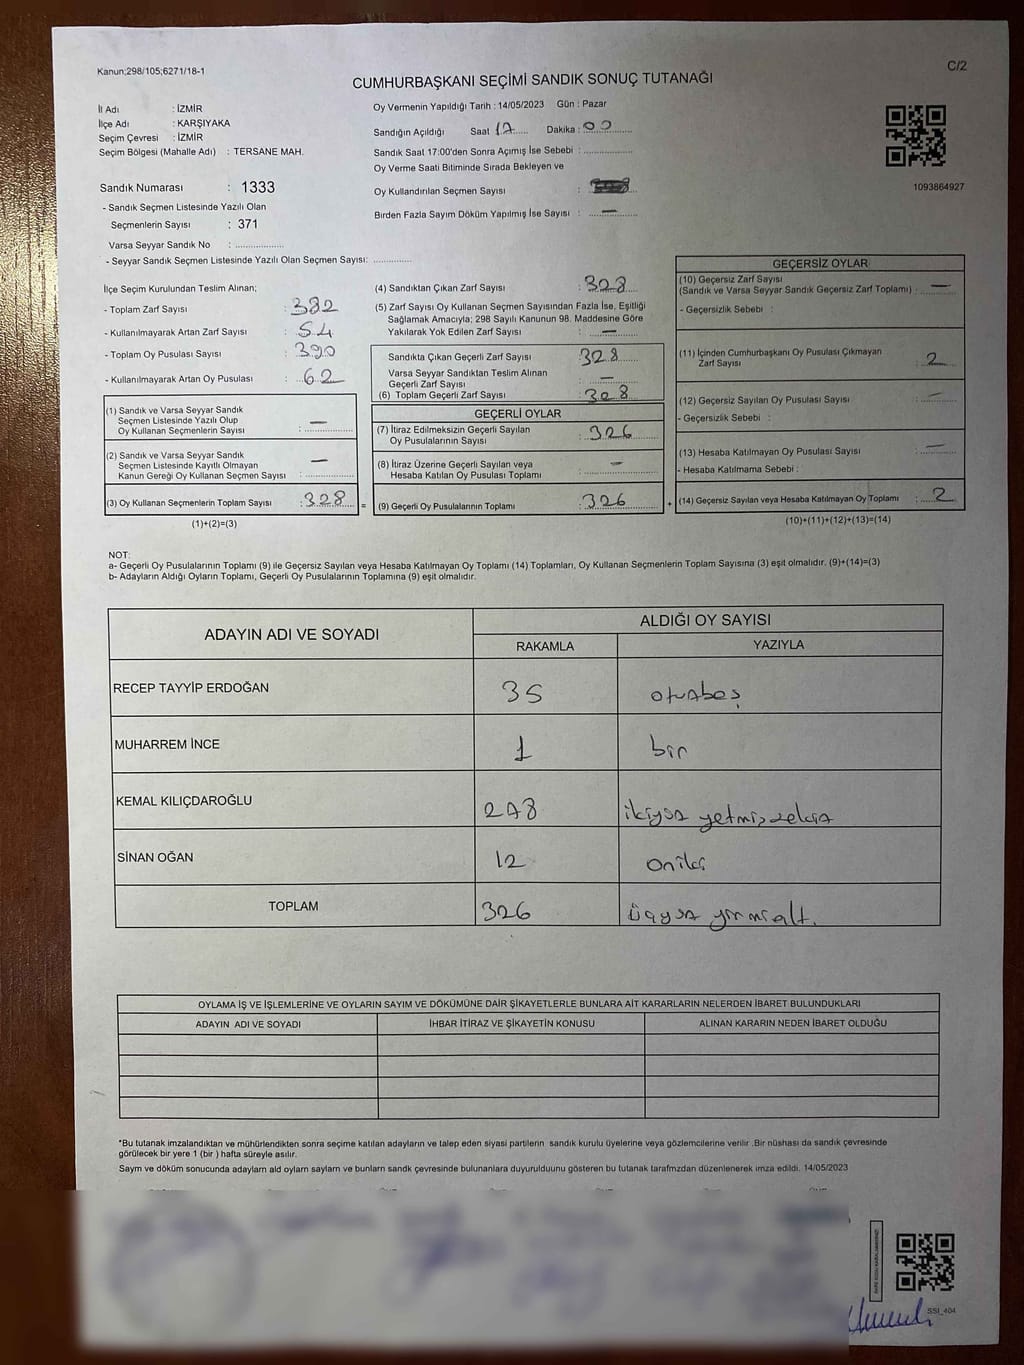 Kanun;298/105;6271/18-1
C/2
CUMHURBAŞKANI SEÇİMİ SANDIK SONUÇ TUTANAĞI
İl Adı : İZMİR
İlçe Adı : KARŞIYAKA
Seçim Çevresi : İZMİR
Seçim Bölgesi (Mahalle Adı) : TERSANE MAH.
Sandık Numarası : 1333
- Sandık Seçmen Listesinde Yazılı Olan
Seçmenlerin Sayısı : 371
Varsa Seyyar Sandık No : ................
- Seyyar Sandık Seçmen Listesinde Yazılı Olan Seçmen Sayısı: .............
Oy Vermenin Yapıldığı Tarih : 14/05/2023 Gün : Pazar
Sandığın Açıldığı Saat 17 Dakika : 00
Sandık Saat 17:00'den Sonra Açımış İse Sebebi : ................
Oy Verme Saati Bitiminde Sırada Bekleyen ve
Oy Kullandırılan Seçmen Sayısı :
Birden Fazla Sayım Döküm Yapılmış İse Sayısı : —
1093864927
İlçe Seçim Kurulundan Teslim Alınan;
- Toplam Zarf Sayısı : 382
- Kullanılmayarak Artan Zarf Sayısı : 54
- Toplam Oy Pusulası Sayısı : 390
- Kullanılmayarak Artan Oy Pusulası : 62
(1) Sandık ve Varsa Seyyar Sandık
Seçmen Listesinde Yazılı Olup
Oy Kullanan Seçmenlerin Sayısı : —
(2) Sandık ve Varsa Seyyar Sandık
Seçmen Listesinde Kayıtlı Olmayan
Kanun Gereği Oy Kullanan Seçmen Sayısı : —
(3) Oy Kullanan Seçmenlerin Toplam Sayısı : 328 =
(1)+(2)=(3)
(4) Sandıktan Çıkan Zarf Sayısı : 328
(5) Zarf Sayısı Oy Kullanan Seçmen Sayısından Fazla İse, Eşitliği
Sağlamak Amacıyla; 298 Sayılı Kanunun 98. Maddesine Göre
Yakılarak Yok Edilen Zarf Sayısı : —
Sandıkta Çıkan Geçerli Zarf Sayısı : 328
Varsa Seyyar Sandıktan Teslim Alınan
Geçerli Zarf Sayısı : —
(6) Toplam Geçerli Zarf Sayısı : 328
GEÇERLİ OYLAR
(7) İtiraz Edilmeksizin Geçerli Sayılan
Oy Pusulalarının Sayısı : 326
(8) İtiraz Üzerine Geçerli Sayılan veya
Hesaba Katılan Oy Pusulası Toplamı : —
(9) Geçerli Oy Pusulalarının Toplamı : 326 +
GEÇERSİZ OYLAR
(10) Geçersiz Zarf Sayısı
(Sandık ve Varsa Seyyar Sandık Geçersiz Zarf Toplamı) : —
- Geçersizlik Sebebi :
(11) İçinden Cumhurbaşkanı Oy Pusulası Çıkmayan
Zarf Sayısı : 2
(12) Geçersiz Sayılan Oy Pusulası Sayısı : —
- Geçersizlik Sebebi :
(13) Hesaba Katılmayan Oy Pusulası Sayısı : —
- Hesaba Katılmama Sebebi :
(14) Geçersiz Sayılan veya Hesaba Katılmayan Oy Toplamı : 2
(10)+(11)+(12)+(13)=(14)
NOT:
a- Geçerli Oy Pusulalarının Toplamı (9) ile Geçersiz Sayılan veya Hesaba Katılmayan Oy Toplamı (14) Toplamları, Oy Kullanan Seçmenlerin Toplam Sayısına (3) eşit olmalıdır. (9)+(14)=(3)
b- Adayların Aldığı Oyların Toplamı, Geçerli Oy Pusulalarının Toplamına (9) eşit olmalıdır.
ADAYIN ADI VE SOYADI
ALDIĞI OY SAYISI
RAKAMLA YAZIYLA
RECEP TAYYİP ERDOĞAN 35 otuzbeş
MUHARREM İNCE 1 bir
KEMAL KILIÇDAROĞLU 278 ikiyüz yetmişsekiz
SİNAN OĞAN 12 oniki
TOPLAM 326 üçyüz yirmialt.
OYLAMA İŞ VE İŞLEMLERİNE VE OYLARIN SAYIM VE DÖKÜMÜNE DAİR ŞİKAYETLERLE BUNLARA AİT KARARLARIN NELERDEN İBARET BULUNDUKLARI
ADAYIN ADI VE SOYADI İHBAR İTİRAZ VE ŞİKAYETİN KONUSU ALINAN KARARIN NEDEN İBARET OLDUĞU
*Bu tutanak imzalandıktan ve mühürlendikten sonra seçime katılan adayların ve talep eden siyasi partilerin sandık kurulu üyelerine veya gözlemcilerine verilir .Bir nüshası da sandık çevresinde
görülecek bir yere 1 (bir ) hafta süreyle asılır.
Sayım ve döküm sonucunda adaylarn ald oylarn saylarn ve bunlarn sandk çevresinde bulunanlara duyurulduunu gösteren bu tutanak tarafmzdan düzenlenerek imza edildi. 14/05/2023
SSI_404